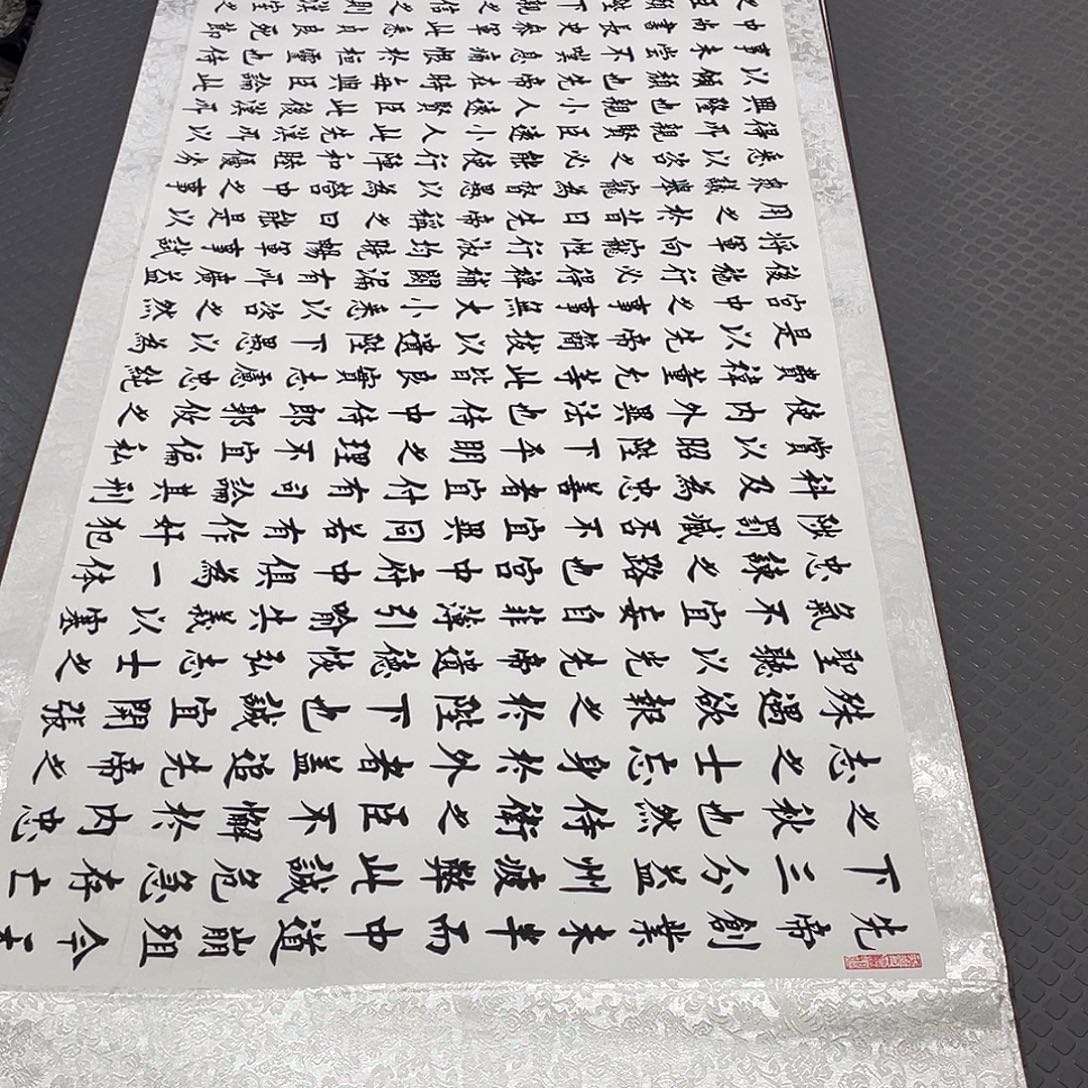 先帝創業未半而中道崩殂今天
下三分益州疲弊此誠危急存亡
之秋也然侍衛之臣不懈於內忠
志之士忘身於外者蓋追先帝之
殊遇欲報之於陛下也誠宜開張
聖聽以光先帝遺德恢弘志士之
氣不宜妄自菲薄引喻失義以塞
忠諫之路也宮中府中俱為一体
陟罰臧否不宜異同若有作奸犯
科及為忠善者宜付有司論其刑
賞以昭陛下平明之理不宜偏私
使內外異法也侍中侍郎郭攸之
費禕董允等此皆良實志慮忠純
是以先帝簡拔以遺陛下愚以為
宮中之事事無大小悉以咨之然
後施行必得裨補闕漏有所廣益
將軍向寵性行淑均曉暢軍事試
用之於昔日先帝稱之曰能是以
眾議舉寵為督愚以為營中之事
悉以咨之必能使行陣和睦優劣
得所親賢臣遠小人此先漢所以
興隆也親小人遠賢臣此後漢所
以傾頹也先帝在時每與臣論此
事未嘗不嘆息痛恨於桓靈也侍
中尚書長史參軍此悉貞良死節
之臣願陛下親之信之則漢室之